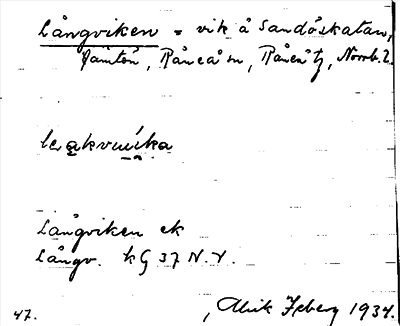 Långviken = vik å Sandöskatan,
Jämtön, Råneå sn, Råneå tg, Norrb. l.
Långviken ek
Långv. kG 37 N.V.
47.
Alrik Iveberg 1934.